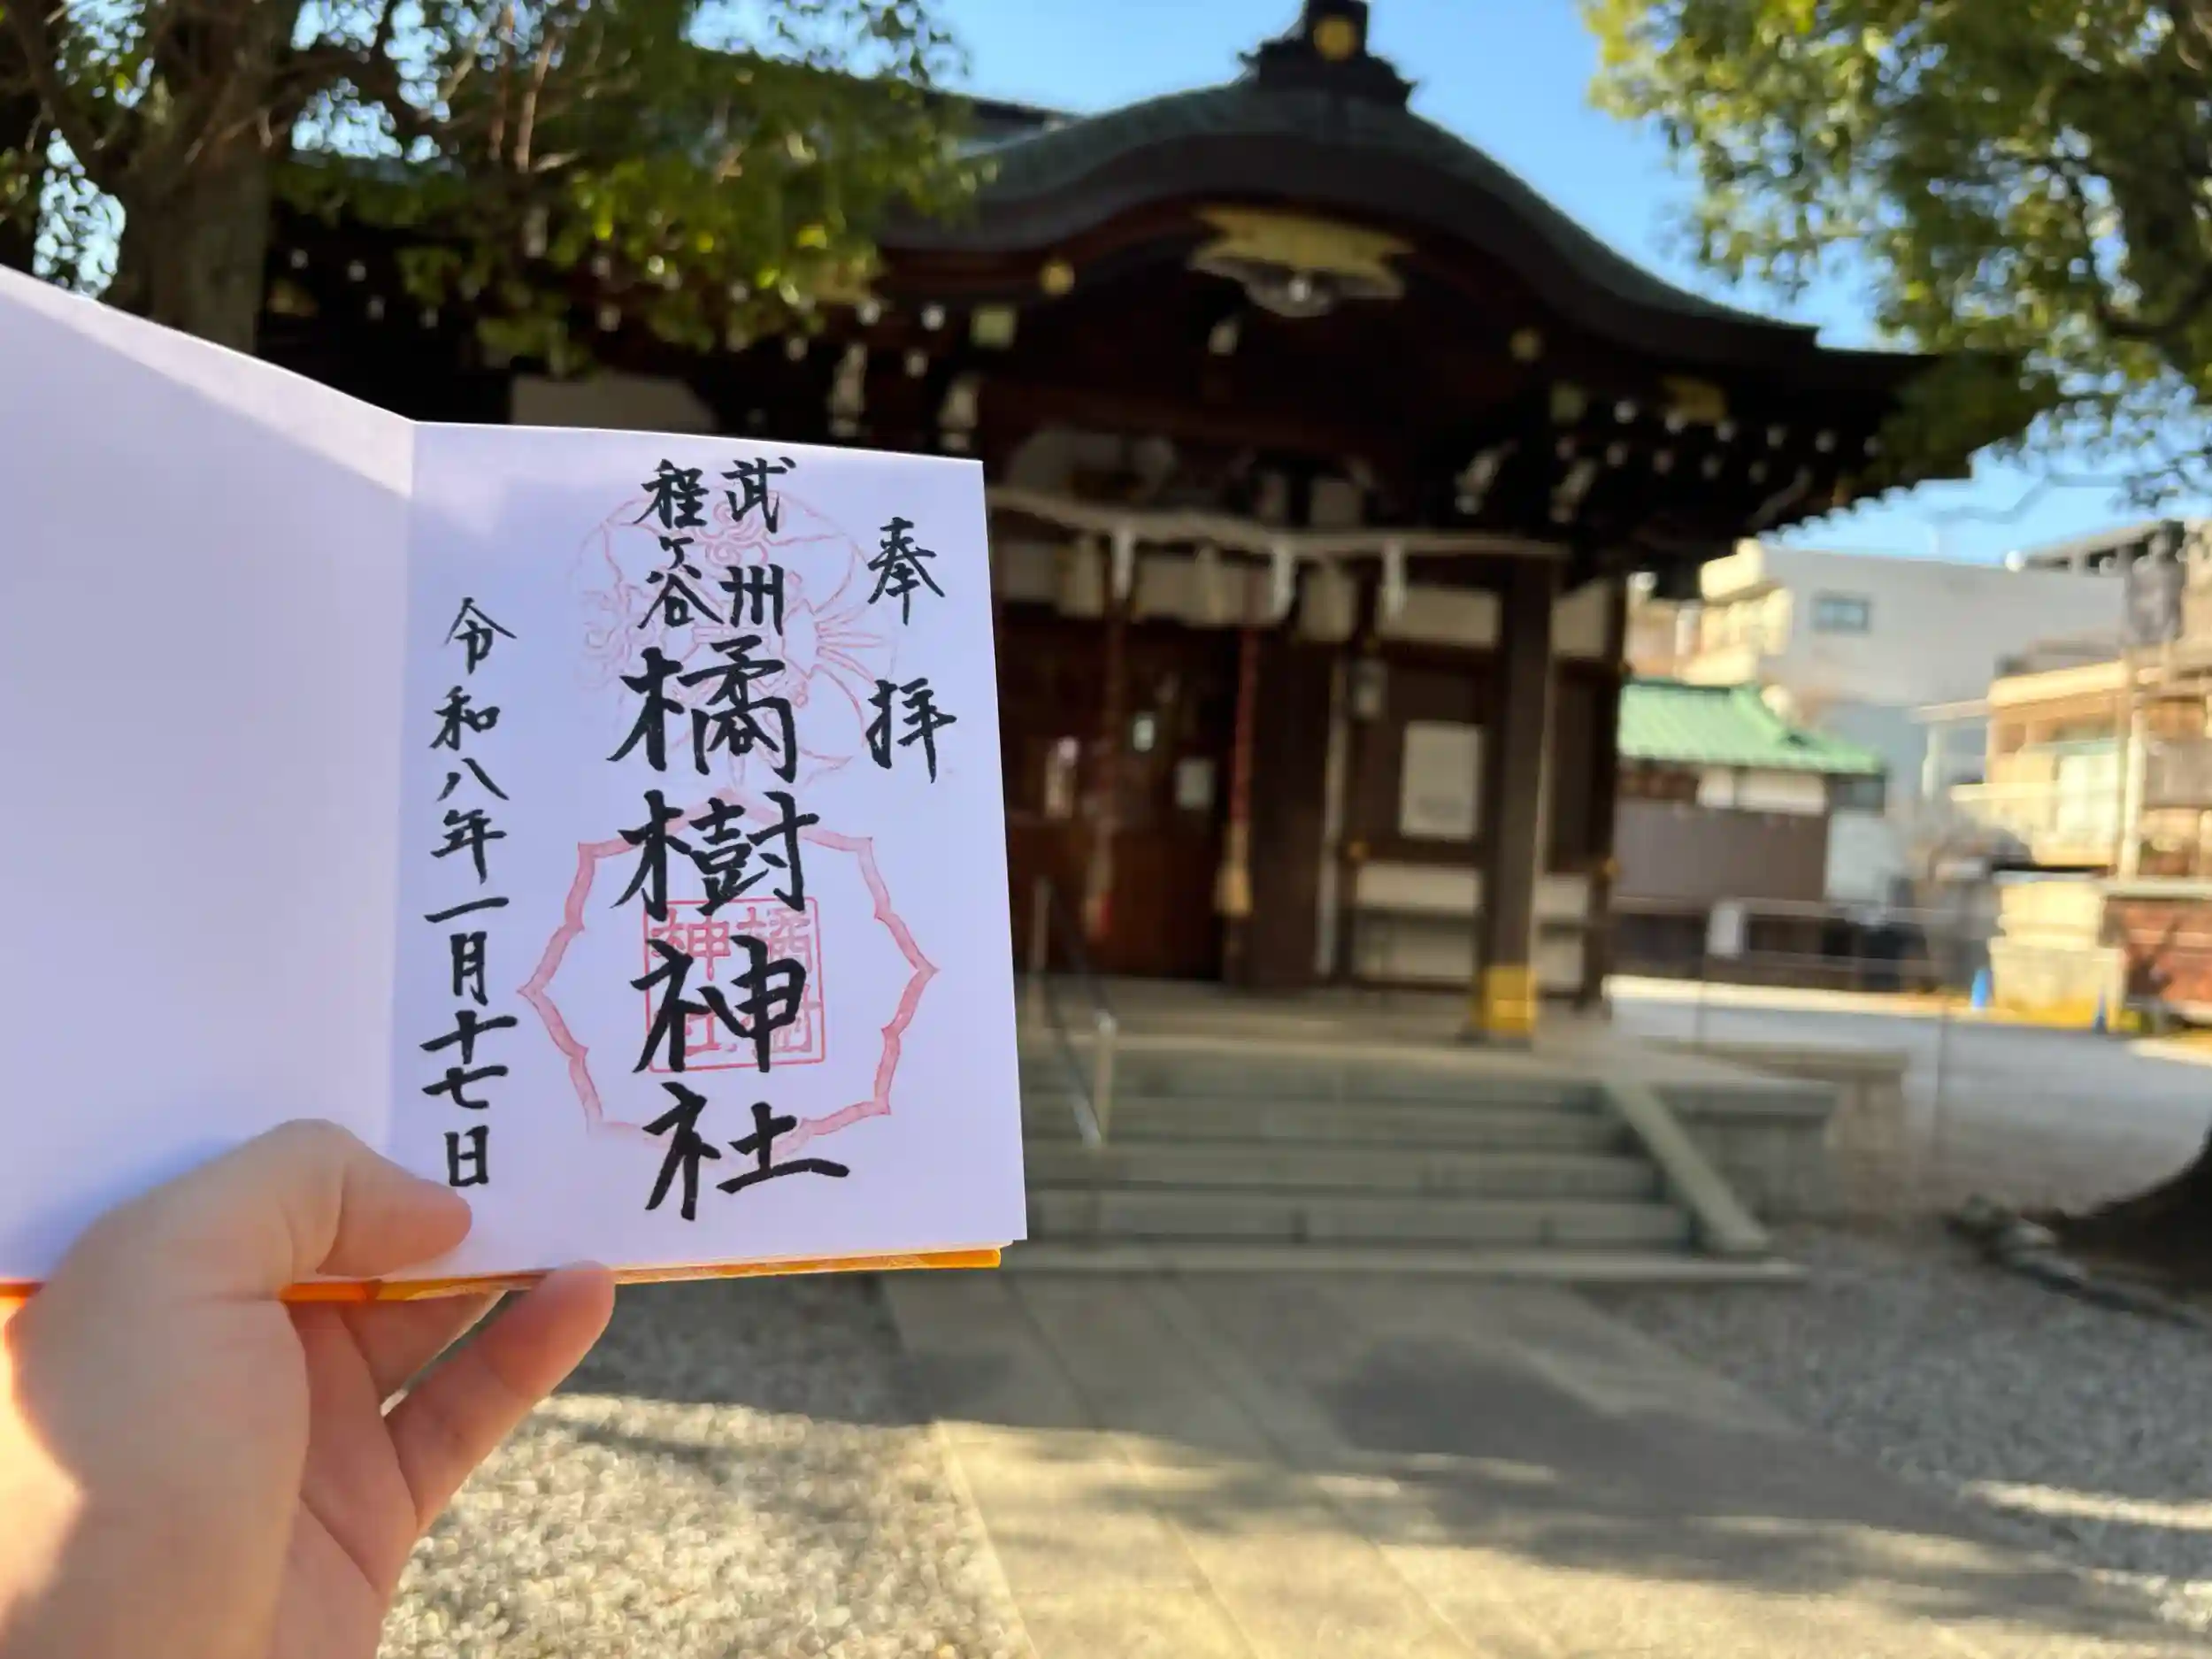 奉拝
武州
程ケ谷
橘樹神社
令和八年一月十七日
橘樹
神社